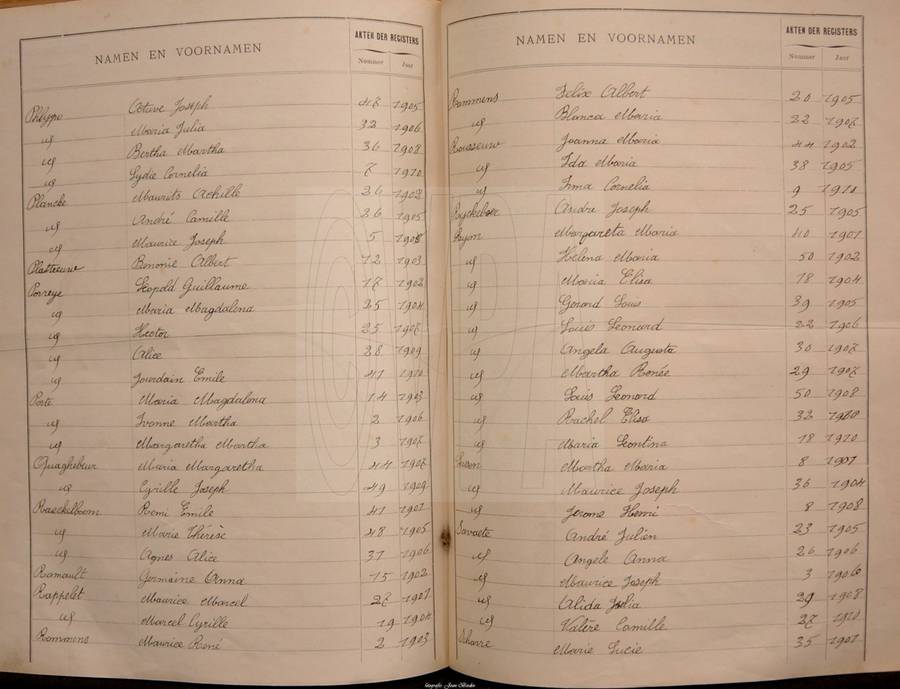 NAMEN EN VOORNAMEN AKTEN DER REGISTERS
Nummer Jaar
Philippo Octave Joseph 47 1905
id Maria Julia 32 1906
id Bertha Martha 36 1908
id Lydie Cornelia 7 1910
Plancke Maurits Achille 26 1902
id André Camille 26 1905
id Maurice Joseph 5 1908
Platteeuw Albert 12 1903
Porreye Leopold Guillaume 17 1902
id Maria Magdalena 25 1904
id Hector 25 1907
id Alice 28 1909
id Jourdain Emile 41 1910
Porte Maria Magdalena 14 1903
id Ivonne Martha 2 1906
id Margaretha Martha 3 1907
Quaghebeur Maria Margaretha 44 1907
id Cyrille Joseph 49 1909
Raeckelboom Remi Emile 41 1901
id Marie Thérèse 48 1905
id Agnes Alice 31 1906
Ramault Germaine Anna 15 1902
Rappelet Maurice Marcel 27 1901
id Marcel Cyrille 19 1904
Rommens Maurice René 2 1903
NAMEN EN VOORNAMEN AKTEN DER REGISTERS
Nummer Jaar
Rommens Felix Albert 20 1905
id Blanca Maria 22 1907
Rousseeuw Joanna Maria 44 1902
id Ida Maria 38 1905
id Irma Cornelia 9 1910
Ryckeboer André Joseph 25 1905
Ryon Margareta Maria 40 1901
id Helena Maria 50 1902
id Maria Elisa 18 1904
id Gerard Louis 39 1905
id Louis Leonard 22 1906
id Angela Augusta 30 1907
id Martha Renée 29 1907
id Louis Leonard 50 1908
id Rachel Elisa 32
id Maria Leontina 18 1910
Martha Maria 8 1901
id Maurice Joseph 36 1904
id Jerome Henri 8 1908
Savaete André Julien 23 1905
id Angele Anna 26 1906
id Maurice Joseph 3 1906
id Alida Julia 29 1908
id Valère Camille 27 1910
Scharre Marie Lucie 35 1901